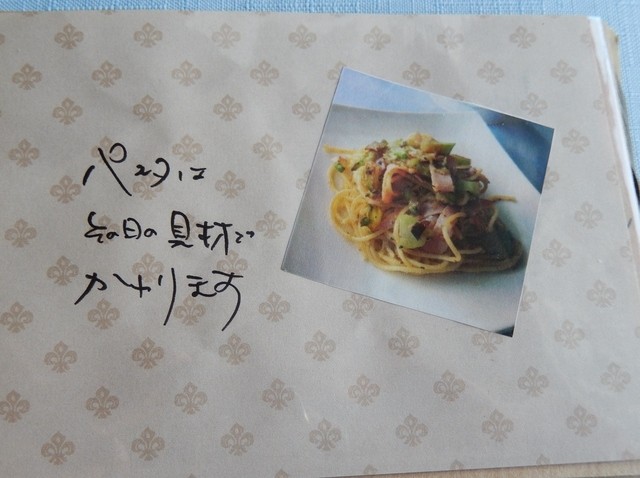 パスタは
その日の具材で
かわります